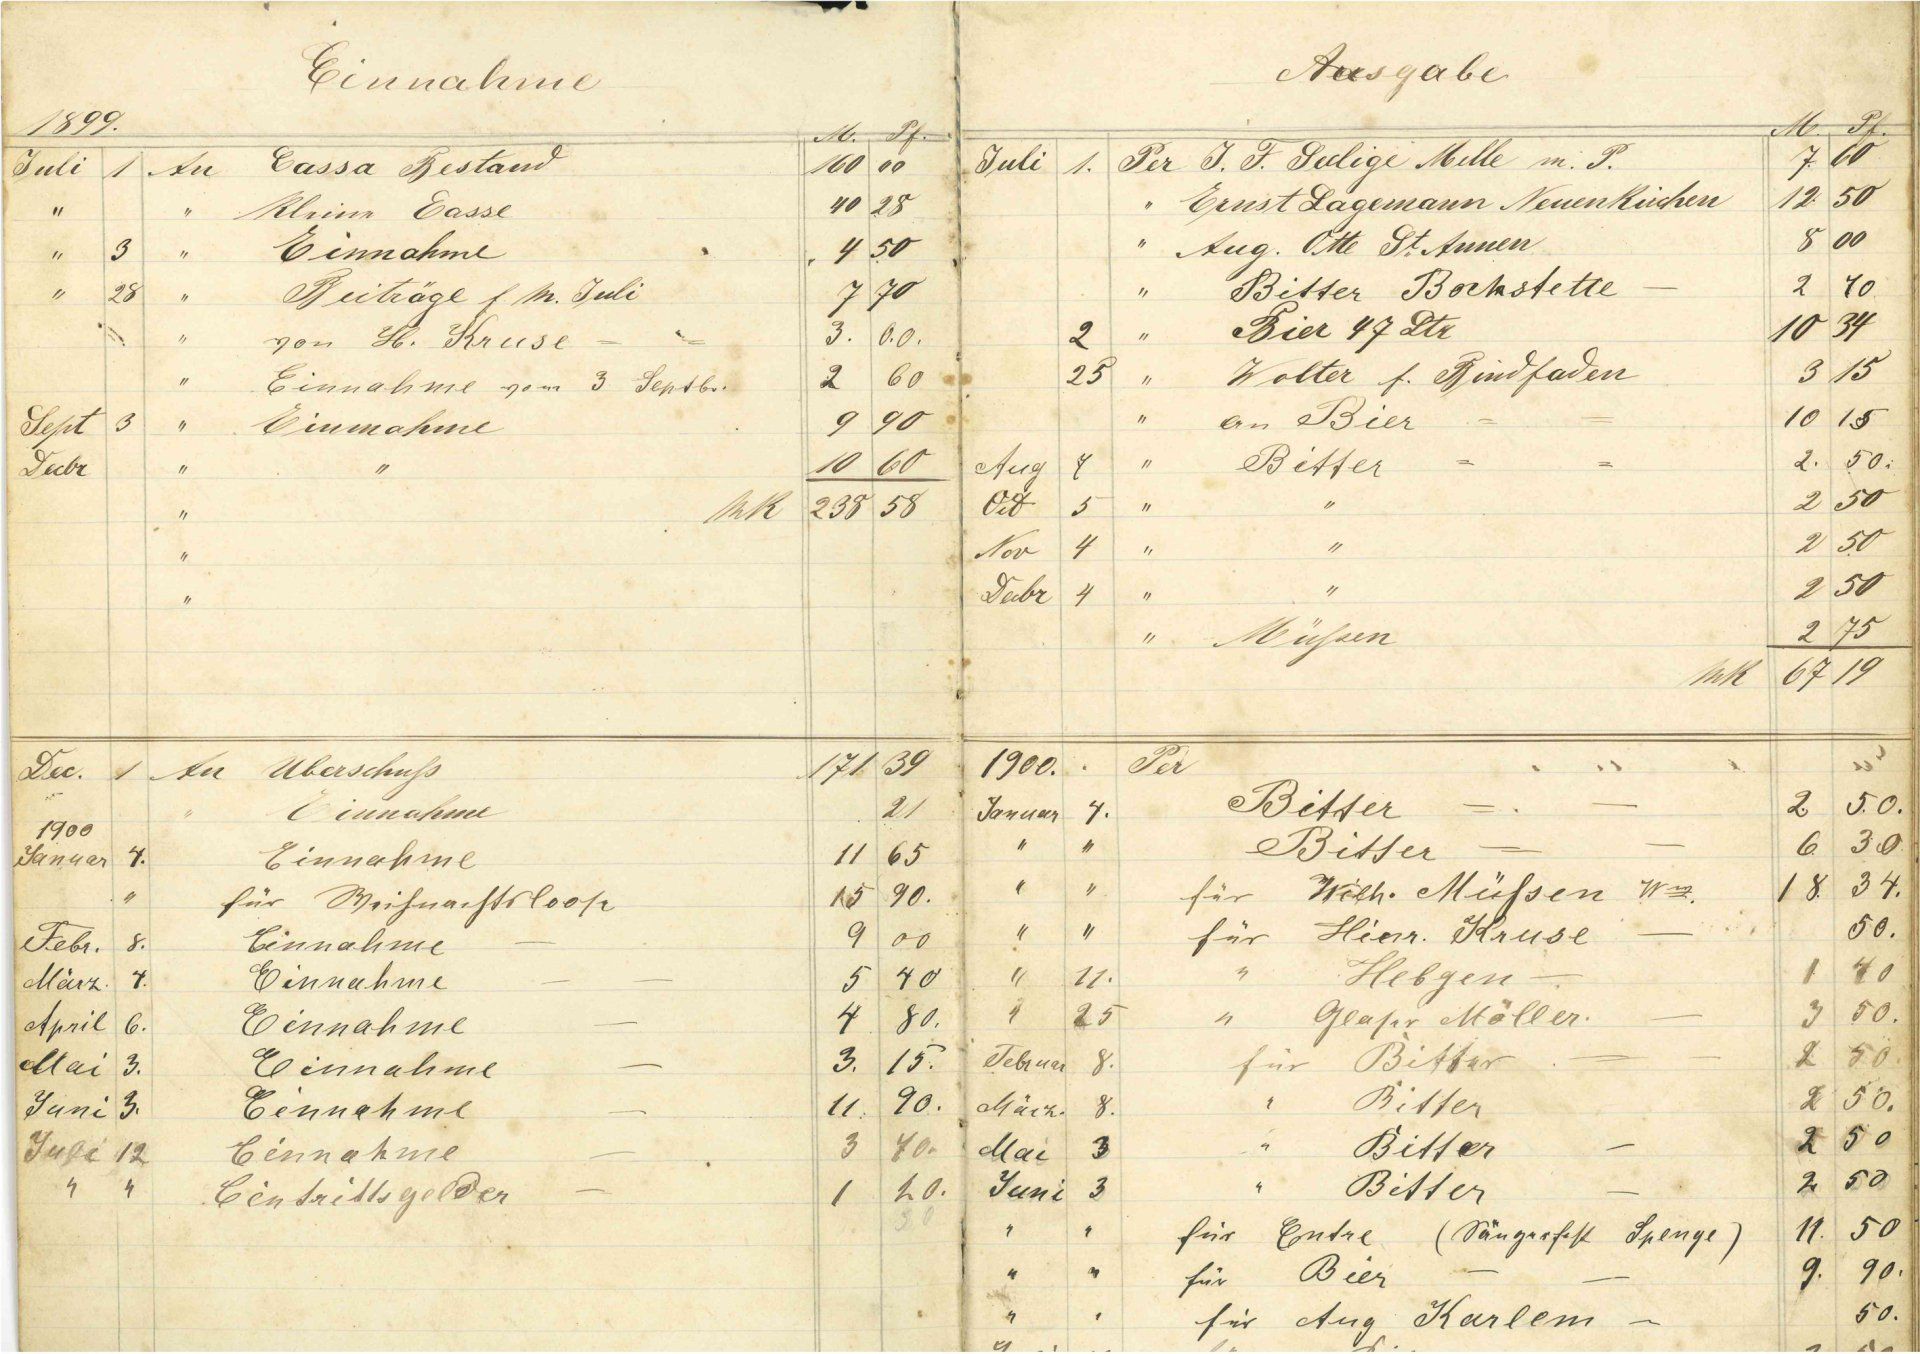 Einnahme
1899.
M. Pf.
Juli 1 An Cassa Bestand 160 00
" " Kleine Casse 40 28
" 3 " Einnahme 4 50
" 28 " Beiträge f. M. Juli 7 70
" von H. Kruse 3. 00.
" Einnahme vom 3 Septbr. 2 60
Sept 3 " Einnahme 9 90
Decbr " " 10 60
" MK 238 58
"
"
Dec. 1 An Überschuss 171 39
" Einnahme 21
1900
Januar 4. Einnahme 11 65
" für Weihnachtsloose 15 90.
Febr. 8. Einnahme — 9 00
März. 4. Einnahme — — 5 40
April 6. Einnahme — 4 80.
Mai 3. Einnahme — 3. 15.
Juni 3. Einnahme — 11. 90.
Juli 12 Einnahme — 3 40.
" " Eintrittsgelder — 1 20.
Ausgabe
M. Pf.
Juli 1. Per J. F. Selige Melle m. P. 7. 60
" Ernst Lagemann Neuenkirchen 12. 50
" Aug. Otte St. Annen 8 00
" Bitter Bockstette — 2 40
2 " Bier 47 Ltr 10 34
25 " Wolter f. Bindfaden 3 15
" an Bier = = 10 15
Aug 4 " Bitter = = 2. 50.
Oct 5 " " 2 50
Nov 4 " " 2 50
Decbr 4 " " 2 50
" Müssen 2 75
MK 67 19
1900. Per
Januar 4. Bitter — — 2. 50.
" " Bitter — — 6 30
" " für Wilh. Müssen Ww. 18. 34.
" " für Hinr. Kruse — 50.
" 11. " Hebgen — 1 40
" 25 " Glaser Möller. — 3 50.
Februar 8. für Bitter — — 2 50
März. 8. " Bitter 2 50.
Mai 3 " Bitter — 2 50
Juni 3 " Bitter — 2 50
" " für Entre (Sängerfest Spenge) 11. 50
" " für Bier — — 9. 90.
" " für Aug Karlem — 50.